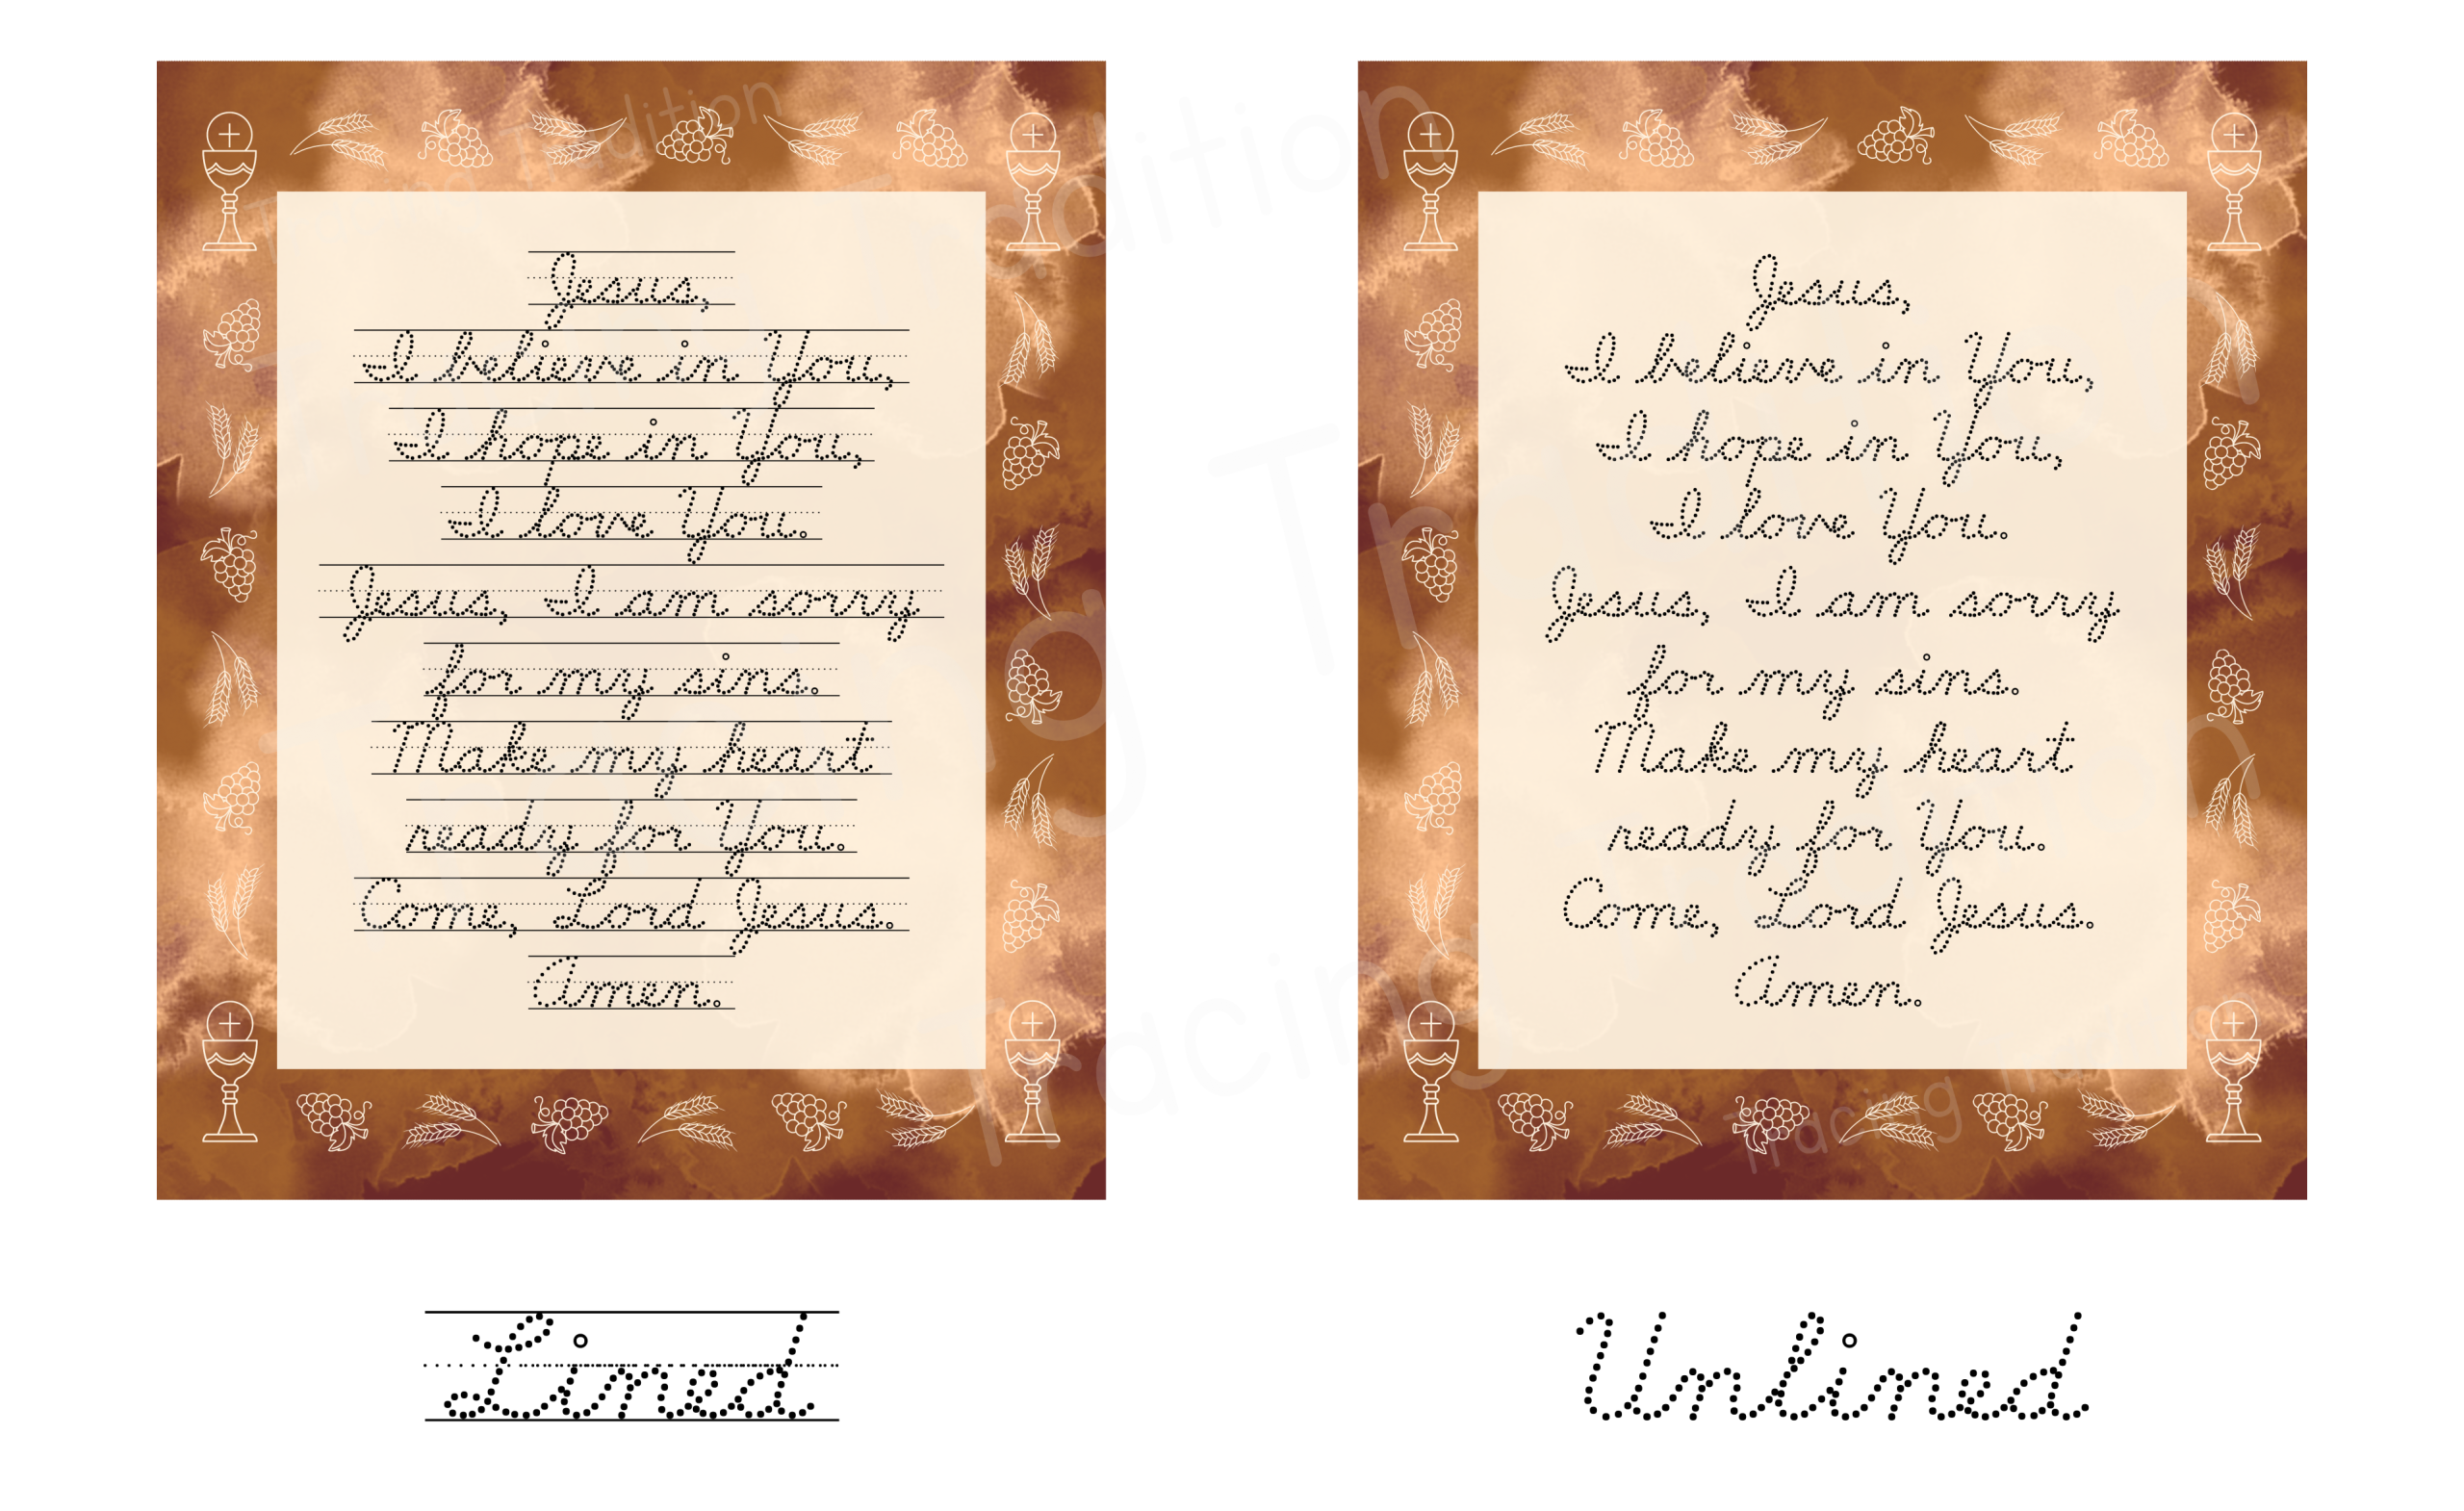 Jesus,
I believe in You,
I hope in You,
I love You.
Jesus, I am sorry
for my sins.
Make my heart
ready for You.
Come, Lord Jesus.
Amen.
Lined
Jesus,
I believe in You,
I hope in You,
I love You.
Jesus, I am sorry
for my sins.
Make my heart
ready for You.
Come, Lord Jesus.
Amen.
Unlined
Tracing Tradition